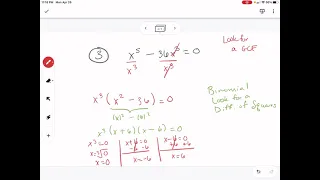 11:13 PM Mon Apr 20
③ x⁵ − 36x³ = 0
x³ x³
Look for a GCF
x³(x² − 36) = 0
(x)² − (6)²
Binomial
Look for a
Diff. of Squares
x³(x+6)(x−6) = 0
x³=0 x+6=0 x−6=0
x=∛0 −6 −6 +6 +6
x=0 x=−6 x=6